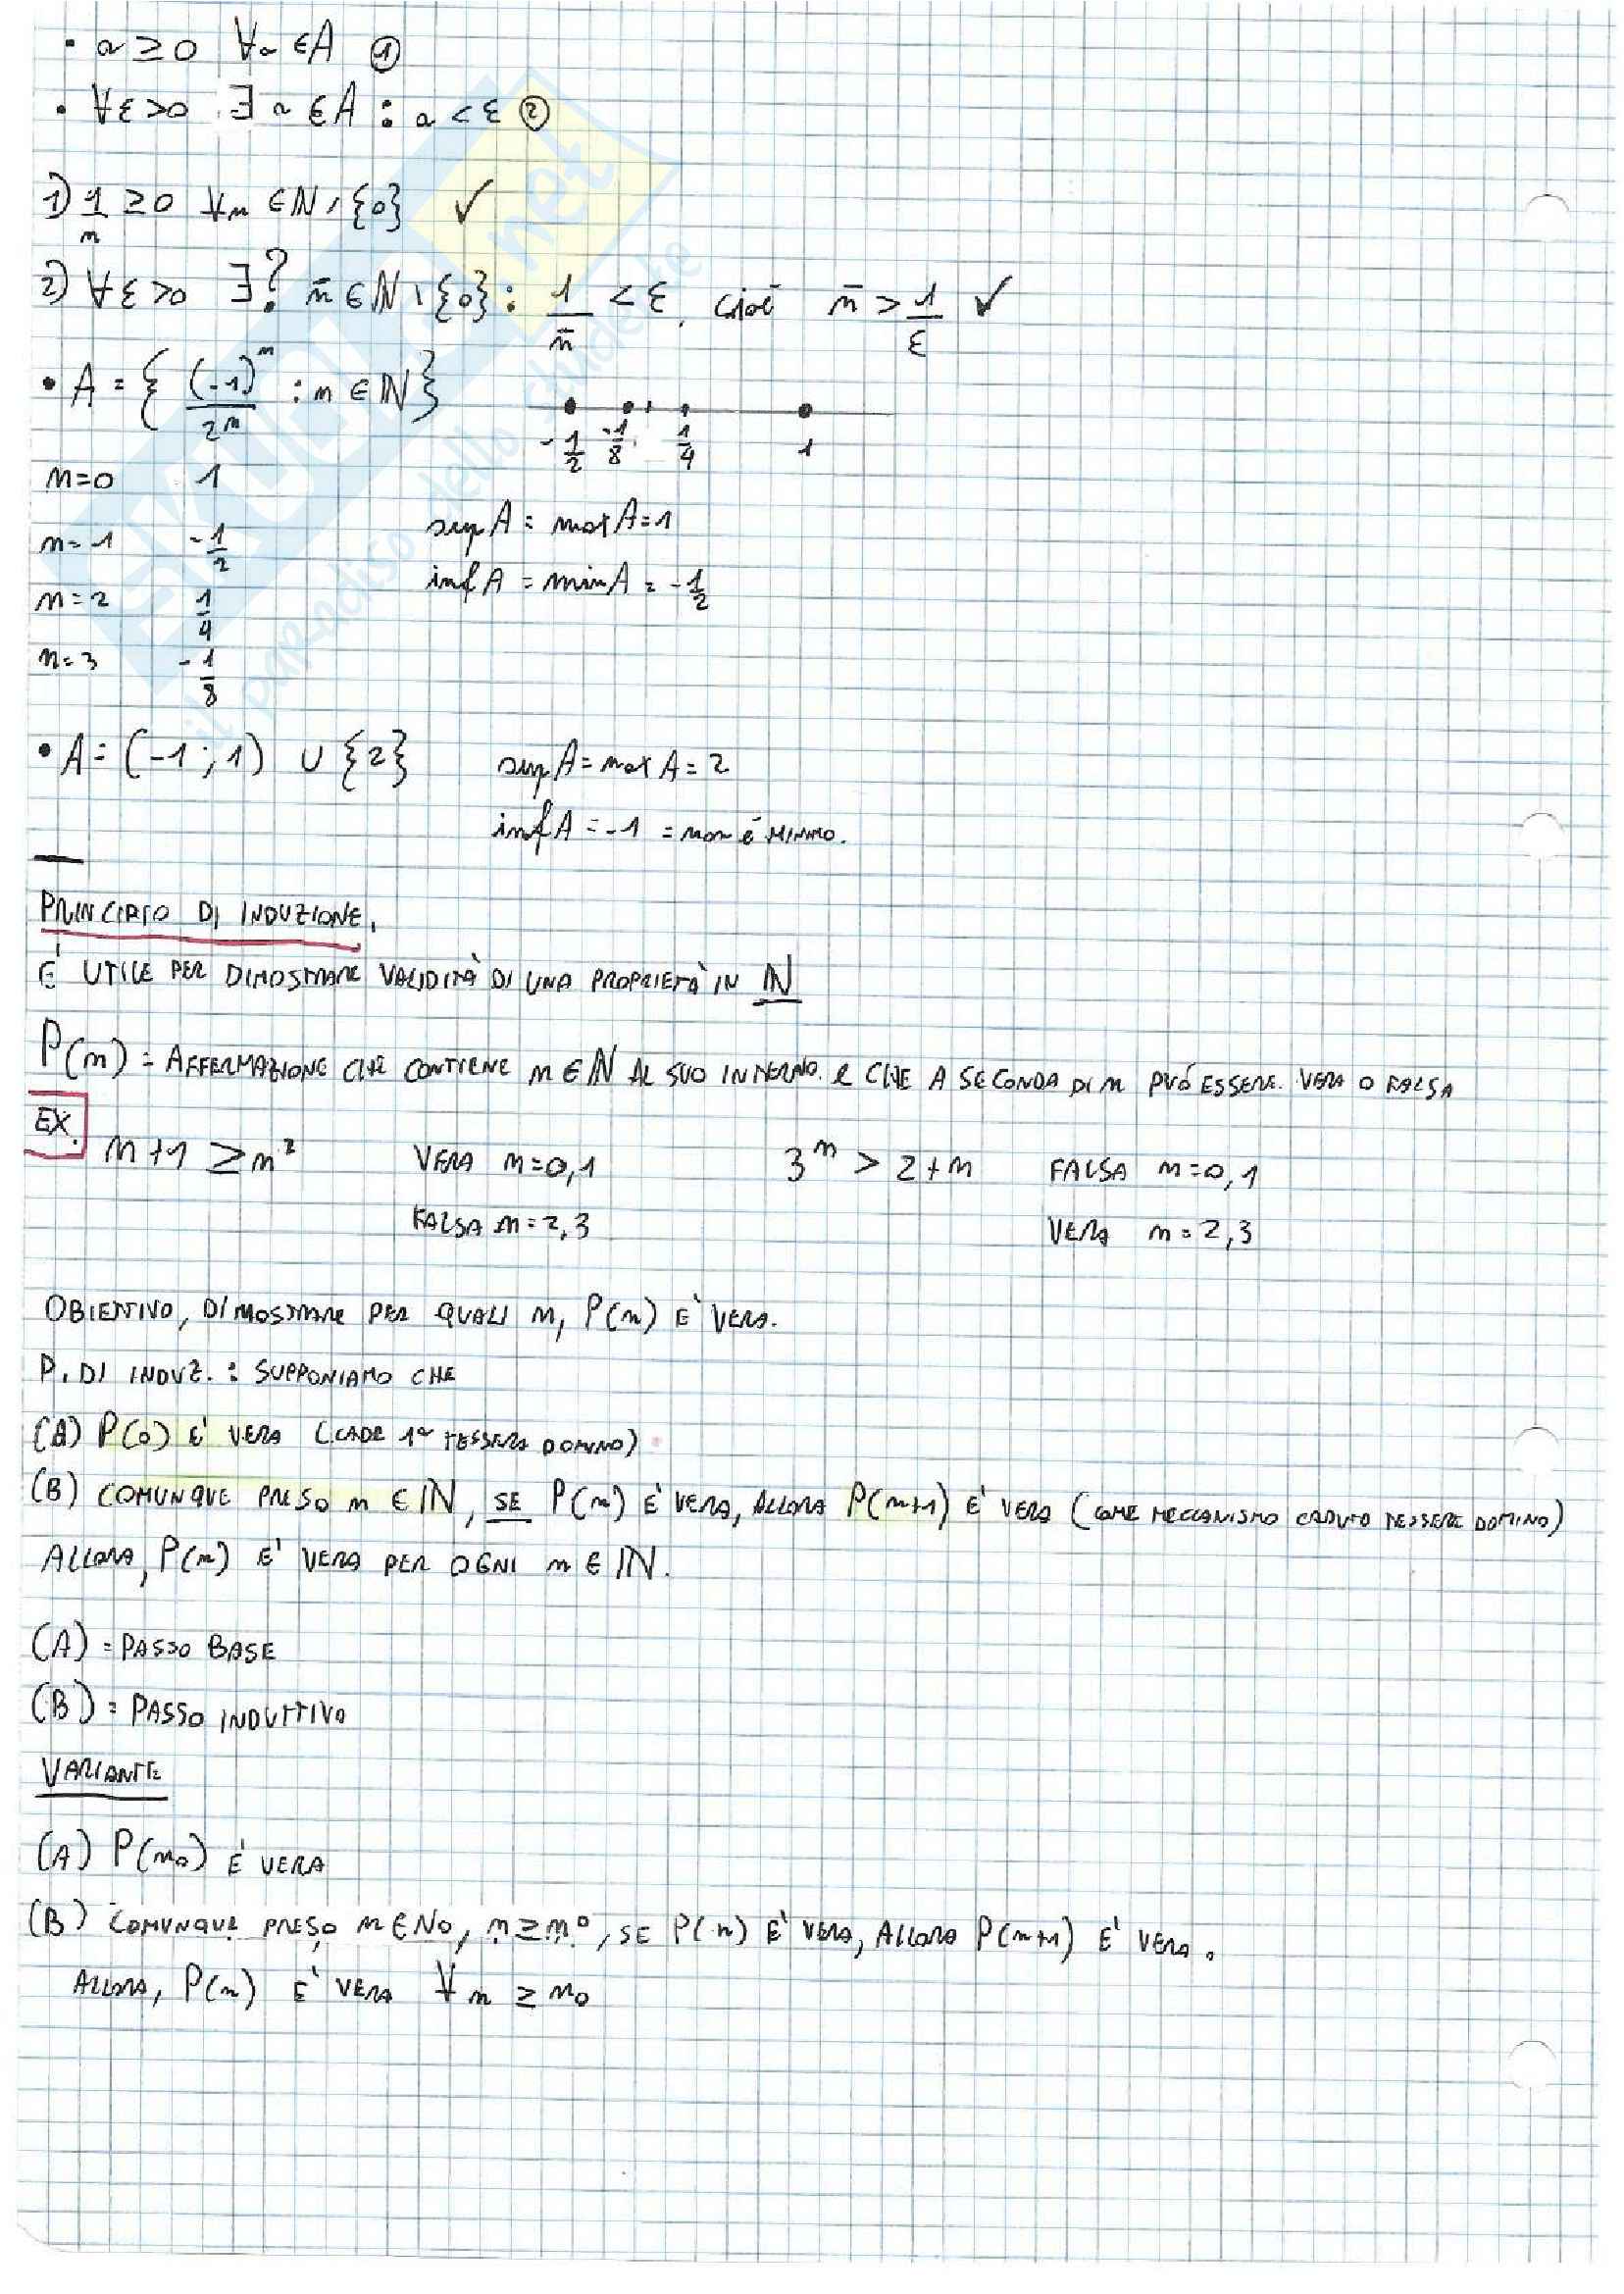 • a ≥ 0 ∀a ∈ A ①
• ∀ε>0 ∃ a ∈ A : a < ε ②
1) 1/n ≥ 0 ∀n ∈ N \ {0} ✓
2) ∀ε>0 ∃? n̄ ∈ N \ {0} : 1/n̄ < ε, cioè n̄ > 1/ε ✓
• A = { (-1)^n / 2^n : n ∈ N }
-1/2 -1/8 1/4 1
n=0 1
n=1 -1/2
n=2 1/4
n=3 -1/8
sup A = max A = 1
inf A = min A = -1/2
• A = (-1 ; 1) ∪ {2} sup A = max A = 2
inf A = -1 = non è MINIMO.
PRINCIPIO DI INDUZIONE.
È UTILE PER DIMOSTRARE VALIDITÀ DI UNA PROPRIETÀ IN N
P(n) = AFFERMAZIONE CHE CONTIENE n ∈ N AL SUO INTERNO. e CHE A SECONDA DI n PUÒ ESSERE. VERA O FALSA
EX.
n+1 ≥ n² VERA n=0,1 3^n > 2+n FALSA n=0,1
FALSA n=2,3 VERA n=2,3
OBIETTIVO, DIMOSTRARE PER QUALI n, P(n) E' VERA.
P. DI INDUZ. : SUPPONIAMO CHE
(A) P(0) E' VERA (CADE 1ª TESSERA DOMINO)
(B) COMUNQUE PRESO n ∈ N, SE P(n) E' VERA, ALLORA P(n+1) E' VERA (COME MECCANISMO CADUTA TESSERE DOMINO)
ALLORA, P(n) E' VERA PER OGNI n ∈ N.
(A) = PASSO BASE
(B) = PASSO INDUTTIVO
VARIANTE
(A) P(n₀) E' VERA
(B) COMUNQUE PRESO n ∈ N₀, n ≥ n°, SE P(n) E' VERA, ALLORA P(n+1) E' VERA.
ALLORA, P(n) E' VERA ∀ n ≥ n₀
SKUOLA.net
il paradiso dello studente